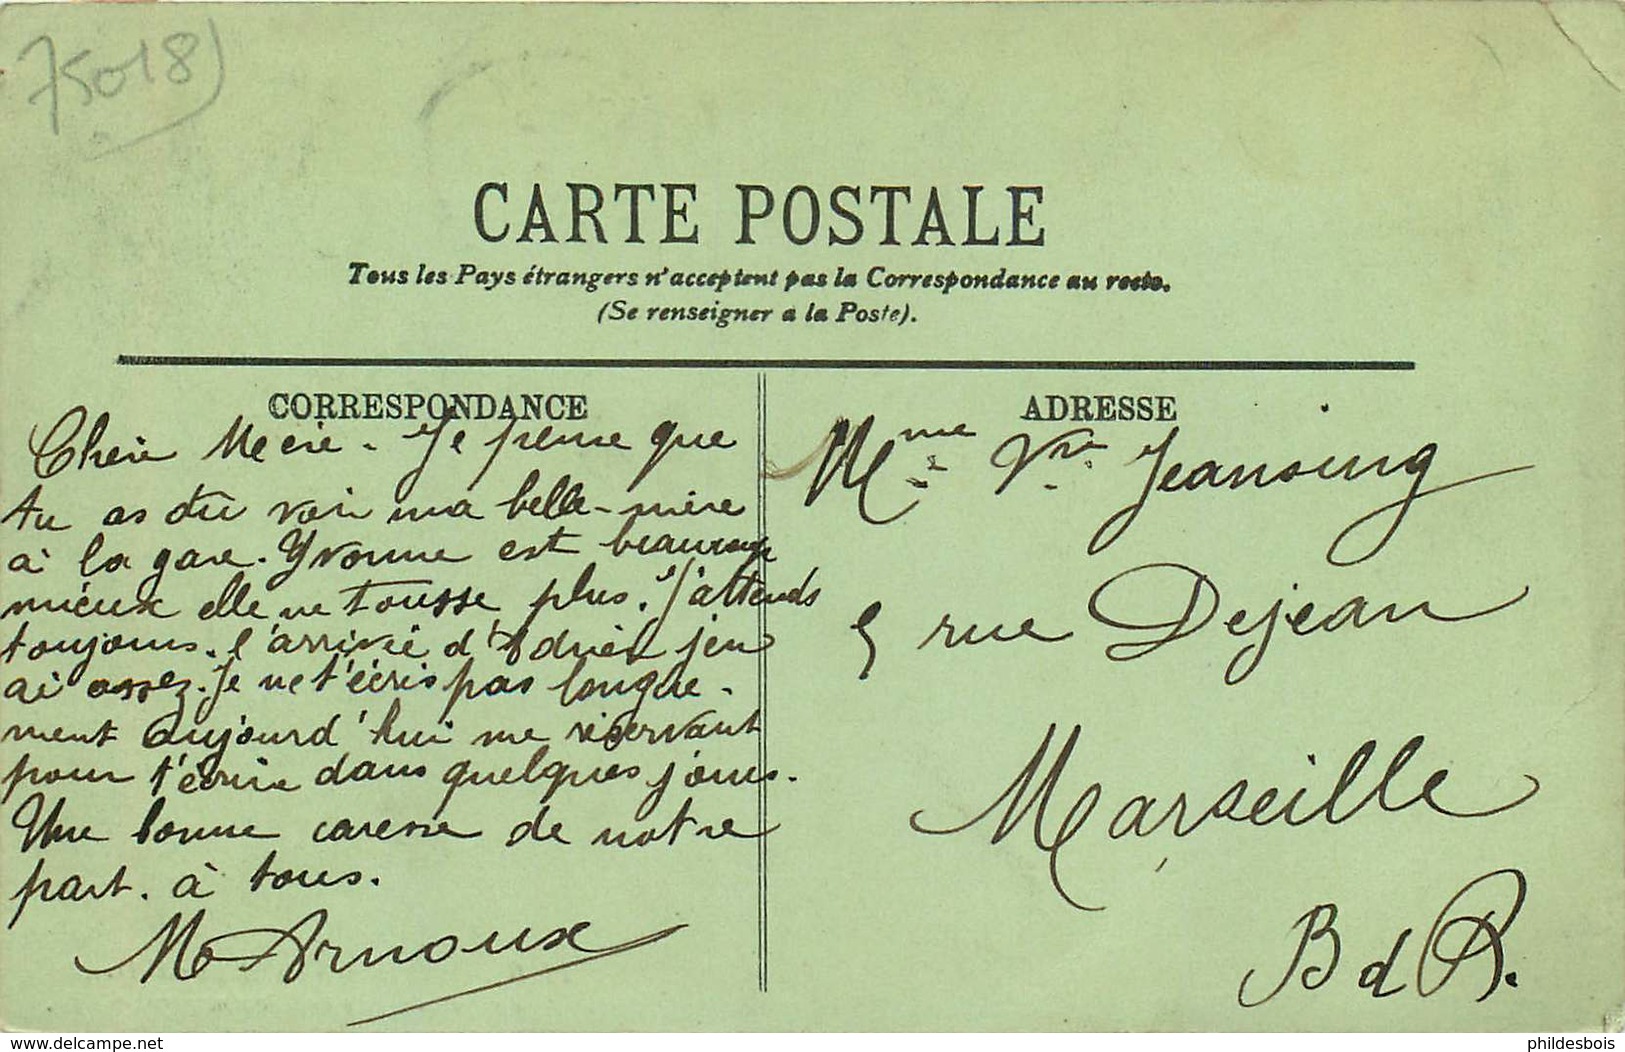 75018)
CARTE POSTALE
Tous les Pays étrangers n'acceptent pas la Correspondance au recto.
(Se renseigner a la Poste).
CORRESPONDANCE
Chère Mère - Je pense que
tu as dû voir ma belle-mère
à la gare. Yvonne est beaucoup
mieux elle ne tousse plus. J'attends
toujours l'arrivé d'Adrien j'en
ai assez. Je ne t'écris pas longue-
ment aujourd'hui me réservant
pour t'écrire dans quelques jours.
Une bonne caresse de notre
part. à tous.
M Arnoux
ADRESSE
Mme Vve Jeansoung
5 rue Dejean
Marseille
B d R.
www.delcampe.net
phildesbois